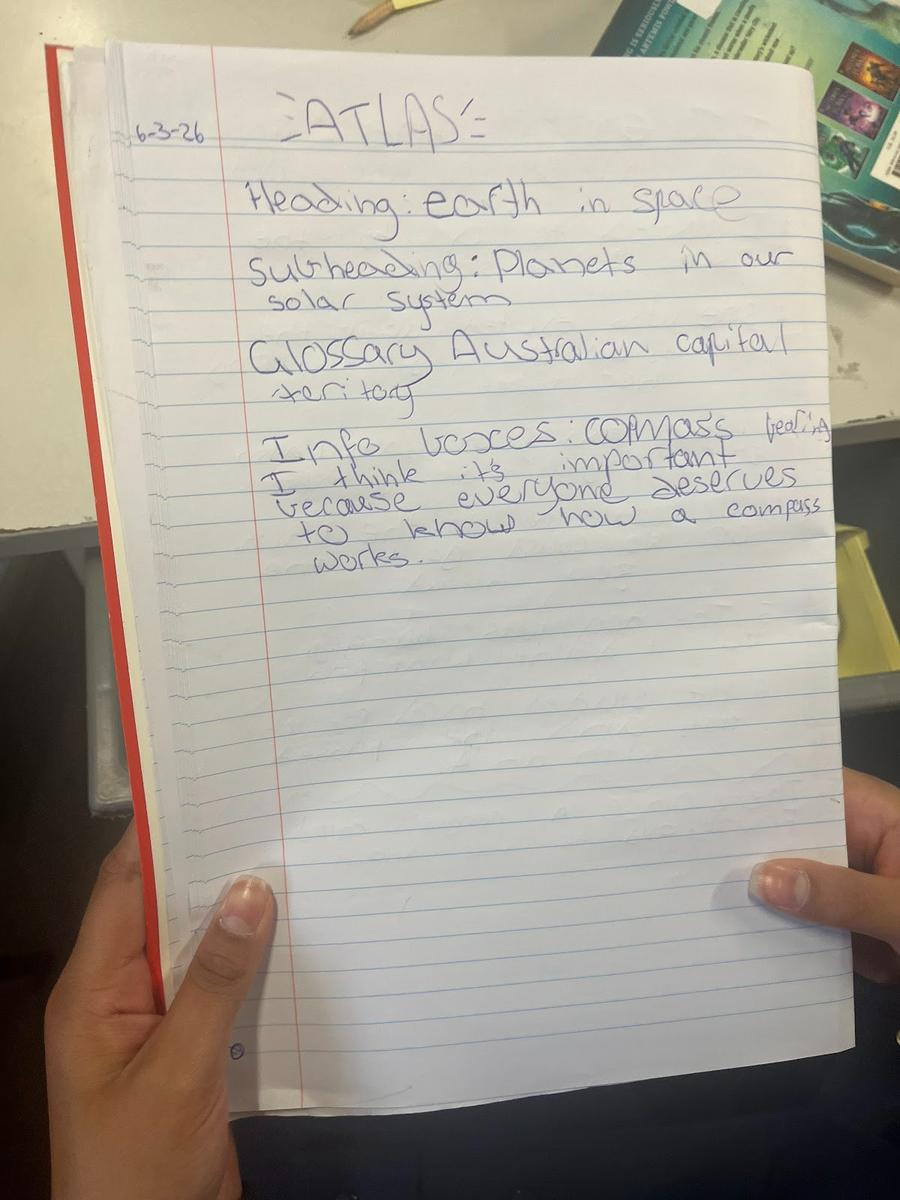 6-3-26
ATLAS
Heading: earth in space
Subheading: Planets in our
solar system
Glossary Australian capital
teritory
Info boxes: compass
I think it's important
because everyone deserves
to know how a compass
works.
ARTEMIS FOWL